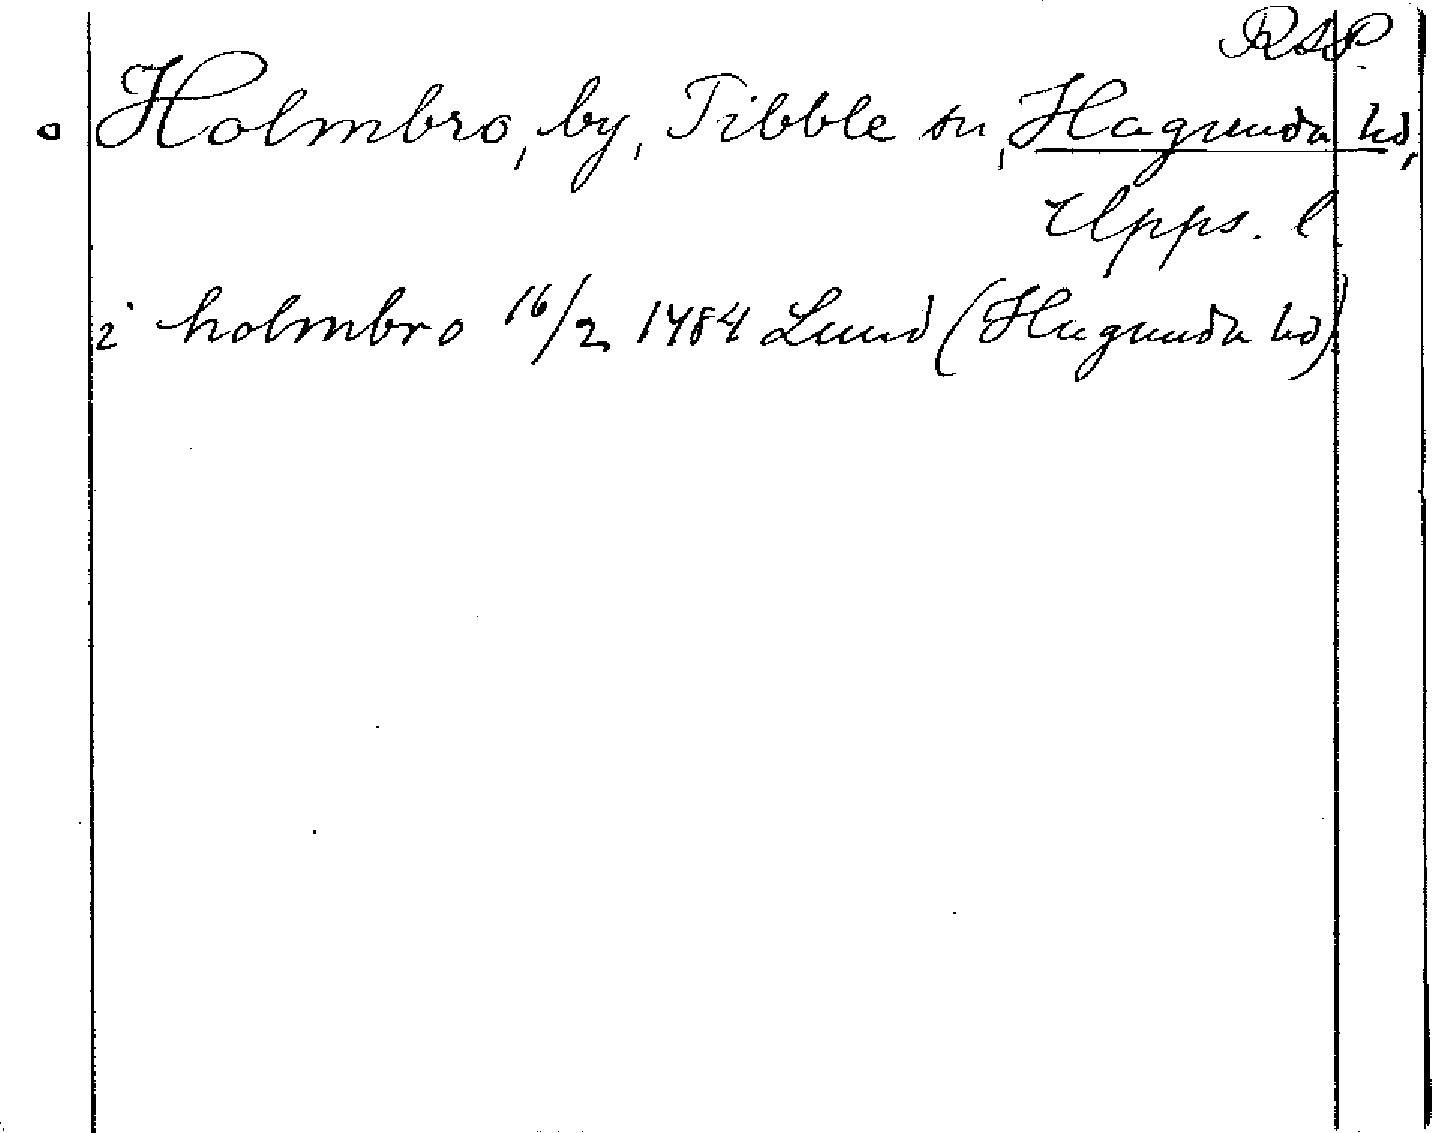 RAP.
Holmbro, by, Tibble sn, Hagunda hd,
Upps. l.
i holmbro 16/2 1484 Lund (Hagunda hd)